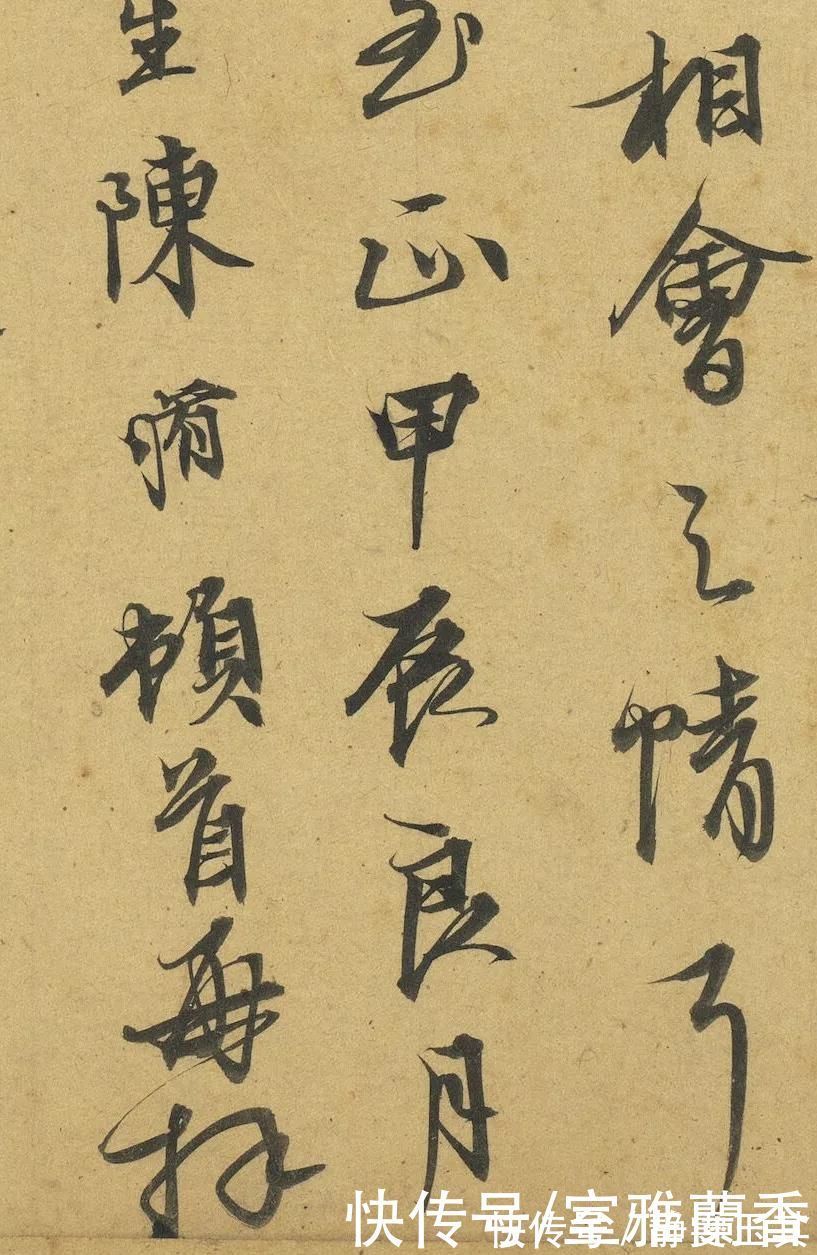 相會之情了
至正甲辰良月
生陳頓首再拜
快传号/室雅蘭香